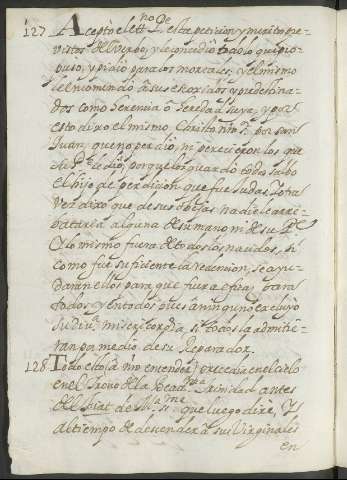 127 Acepto el etno Pe esta peticion, y meritos pre-
vistos del verbo, y le concedio todo lo que pro-
puso, y pidio para los mortales, y el mismo
le encomendo a sus escogidos, y predestina-
dos como herencia o heredad suya, y por
esto dixo el mismo Christo nro Sr por san
Juan, que no perdio, ni perecieron los que
su Pe le dio, porque los guardo todos salbo
el hijo de perdicion que fue Judas, y otra
vez dixo que de sus obejas nadie le arre-
bataria alguna de su mano ni de su Pe
Y lo mismo fuera de todos los nacidos, si
como fue suficiente la redencion, se ayu-
daran ellos para que fuera eficaz para
todos, y en todos pues a ninguno excluyo
su divina misericordia, si todos la admitie-
ran por medio de su Reparador.
128 Todo esto (a nro entender) precedia en el cielo
en el trono de la Beatma trinidad antes
del fiat de Ma sma que luego dire, Y
al tiempo de descender a sus Virginales
en